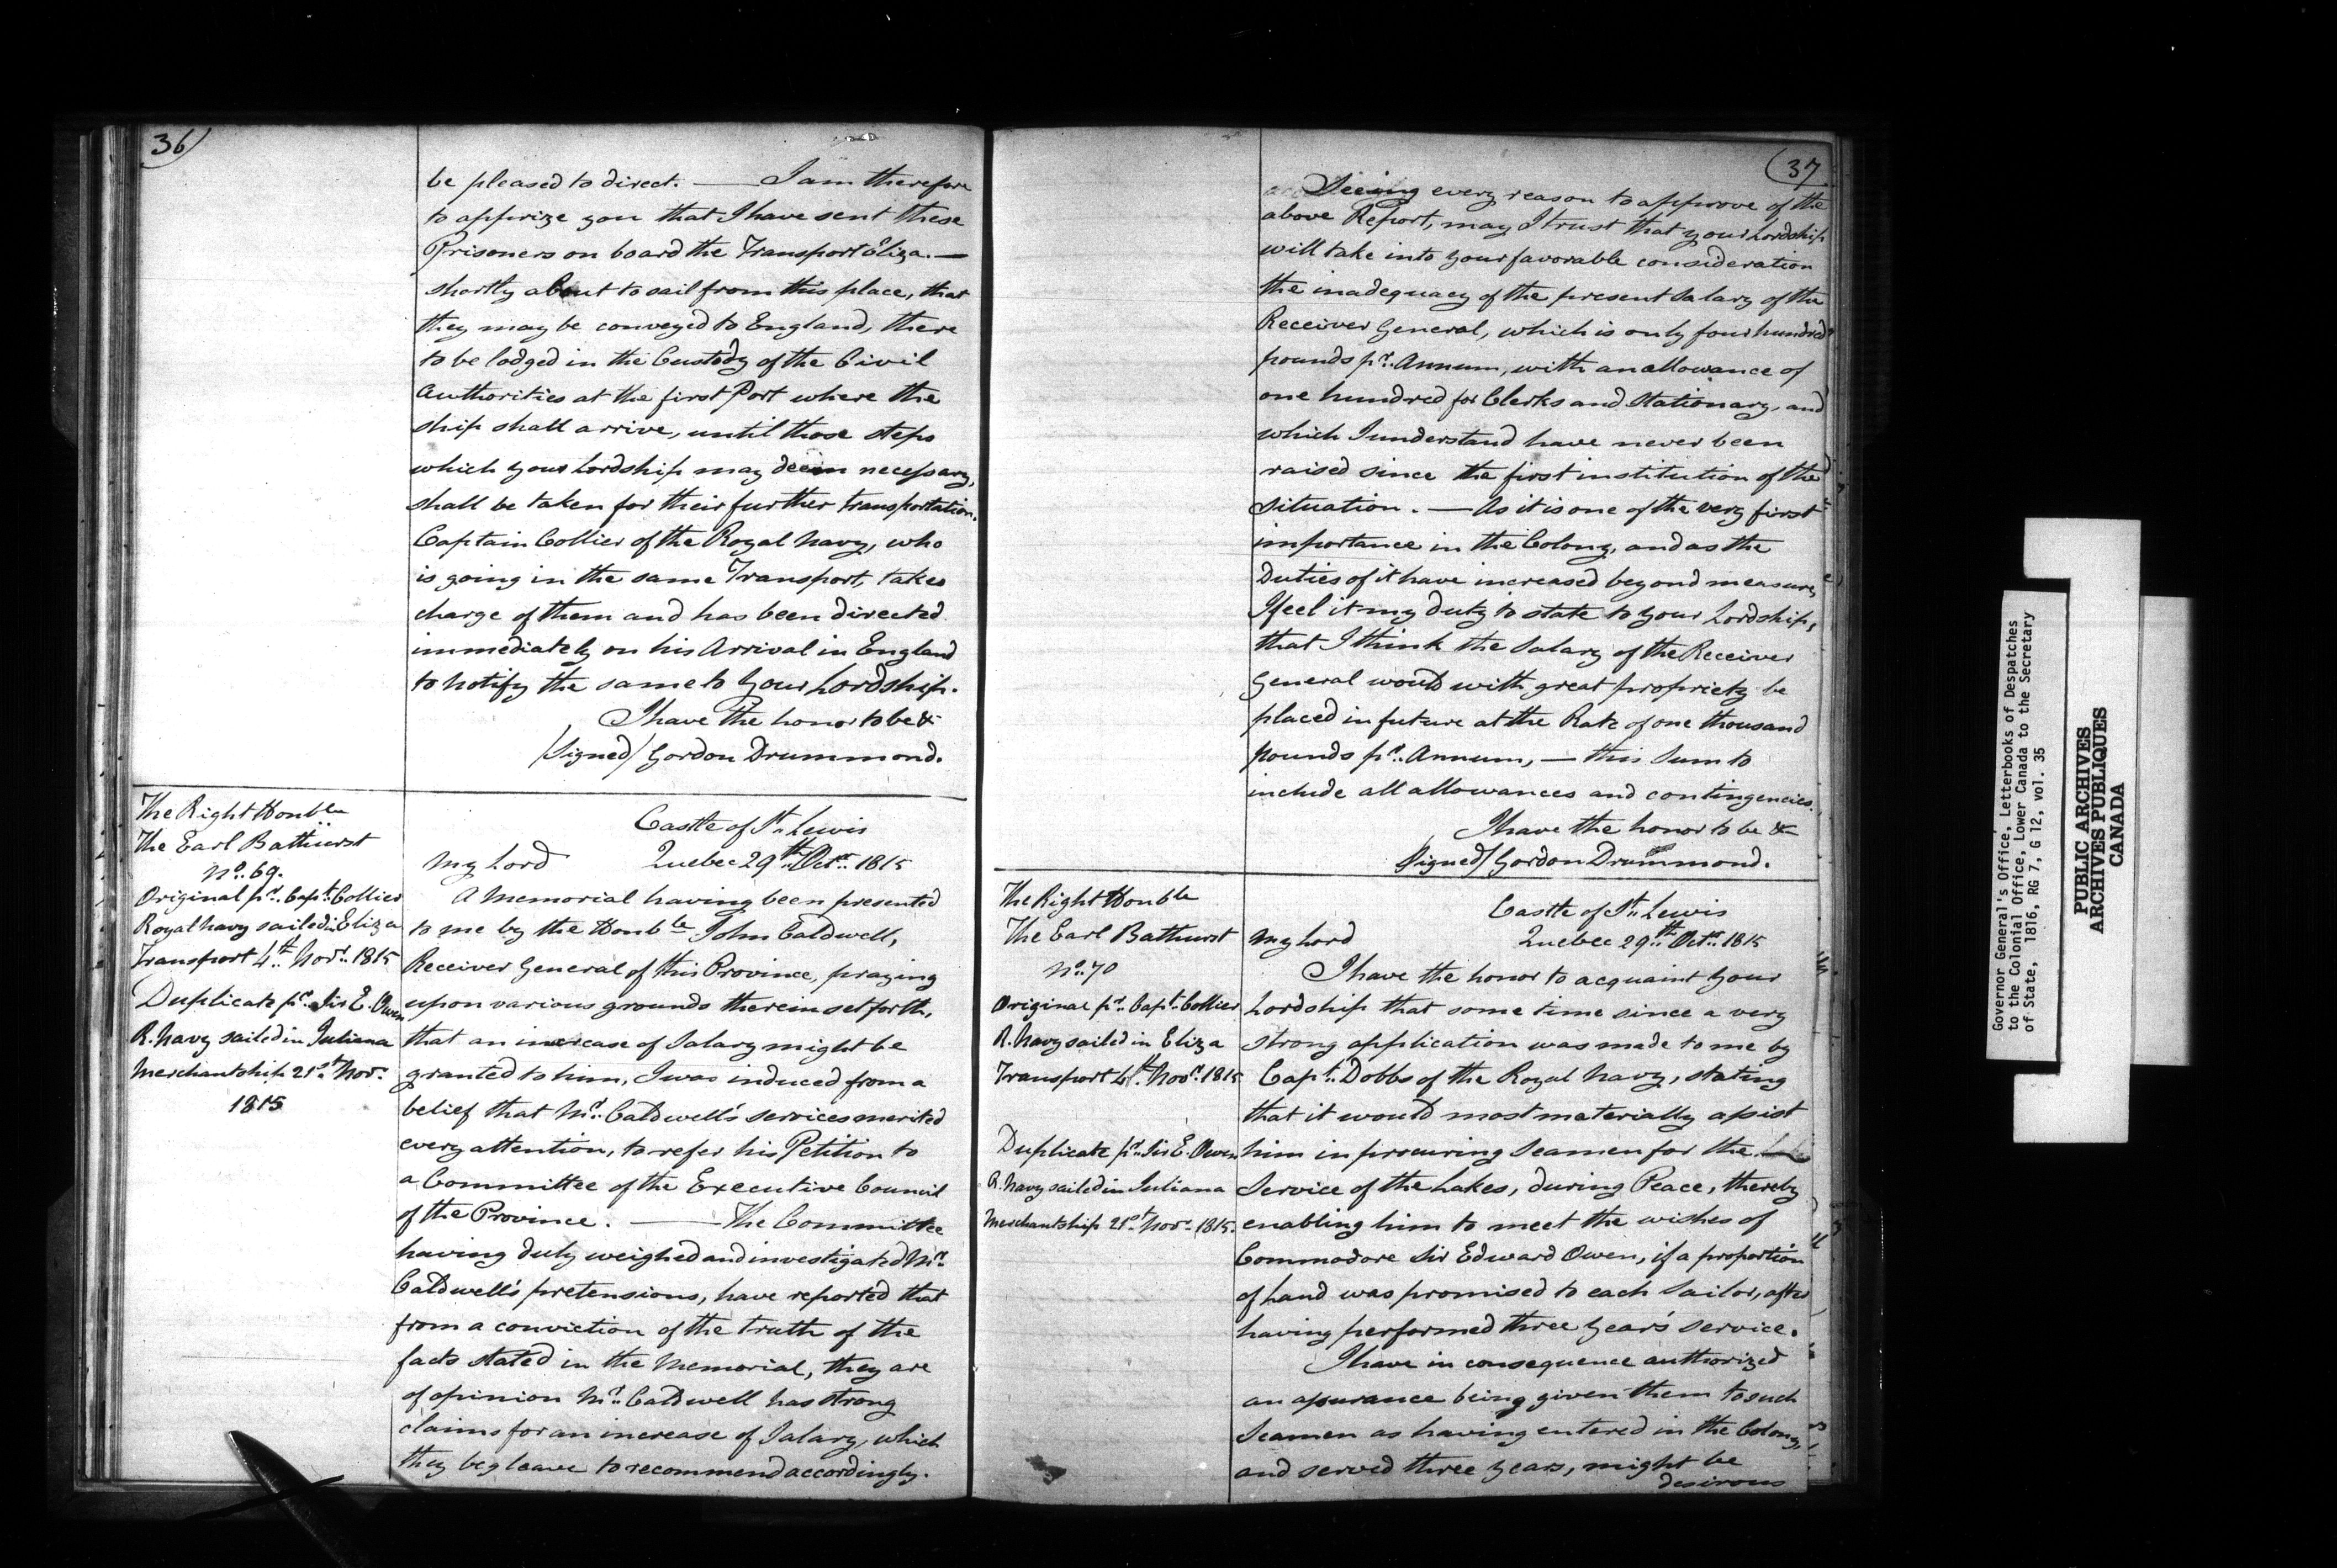 36
be pleased to direct. — I am therefore
to apprize you that I have sent these
Prisoners on board the Transport Eliza. —
shortly about to sail from this place, that
they may be conveyed to England, there
to be lodged in the Custody of the Civil
Authorities at the first Port where the
ship shall arrive, until those steps
which your Lordship may deem necessary,
shall be taken for their further transportation.
Captain Collier of the Royal Navy, who
is going in the same Transport, takes
charge of them and has been directed
immediately on his Arrival in England
to notify the same to Your Lordship.
I have the honor to be &
/Signed/ Gordon Drummond.
The Right Honble
The Earl Bathurst
No. 69.
Original pr. Capt. Collier
Royal Navy sailed in Eliza
Transport 4th Novr. 1815
Duplicate pr. Sir E. Owen
R. Navy sailed in Juliana
Merchantship 21st Novr.
1815
Castle of St. Lewis
My Lord Quebec 29th Octr. 1815
A Memorial having been presented
to me by the Honble John Caldwell,
Receiver General of this Province, praying
upon various grounds therein set forth,
that an increase of Salary might be
granted to him, I was induced from a
belief that Mr. Caldwell's services merited
every attention, to refer his Petition to
a Committee of the Executive Council
of the Province. — The Committee
having duly weighed and investigated Mr.
Caldwell's pretensions, have reported that
from a conviction of the truth of the
facts stated in the Memorial, they are
of opinion Mr. Caldwell has strong
claims for an increase of Salary, which
they beg leave to recommend accordingly.
37
Seeing every reason to approve of the
above Report, may I trust that your Lordship
will take into your favorable consideration
the inadequacy of the present Salary of the
Receiver General, which is only four hundred
pounds pr. Annum, with an allowance of
one hundred for Clerks and Stationary, and
which I understand have never been
raised since the first institution of the
situation. — As it is one of the very first
importance in the Colony, and as the
Duties of it have increased beyond measure,
I feel it my duty to state to your Lordship,
that I think the Salary of the Receiver
General would with great propriety be
placed in future at the Rate of one thousand
pounds pr. Annum, — this Sum to
include all allowances and contingencies.
I have the honor to be &
Signed/ Gordon Drummond.
The Right Honble
The Earl Bathurst
No. 70
Original pr. Capt. Collier
R. Navy sailed in Eliza
Transport 4th Novr. 1815
Duplicate pr. Sir E. Owen
R. Navy sailed in Juliana
Merchantship 21st Novr. 1815.
Castle of St. Lewis
My Lord Quebec 29th Octr. 1815
I have the honor to acquaint your
Lordship that some time since a very
strong application was made to me by
Capt. Dobbs of the Royal Navy, stating
that it would most materially assist
him in procuring Seamen for the
Service of the Lakes, during Peace, thereby
enabling him to meet the wishes of
Commodore Sir Edward Owen, if a proportion
of Land was promised to each Sailor, after
having performed three year's service.
I have in consequence authorized
an assurance being given them to such
Seamen as having entered in the Colony,
and served three years, might be
desirous
Governor General's Office, Letterbooks of Despatches
to the Colonial Office, Lower Canada to the Secretary
of State, 1816, RG 7, G 12, vol. 35
PUBLIC ARCHIVES
ARCHIVES PUBLIQUES
CANADA